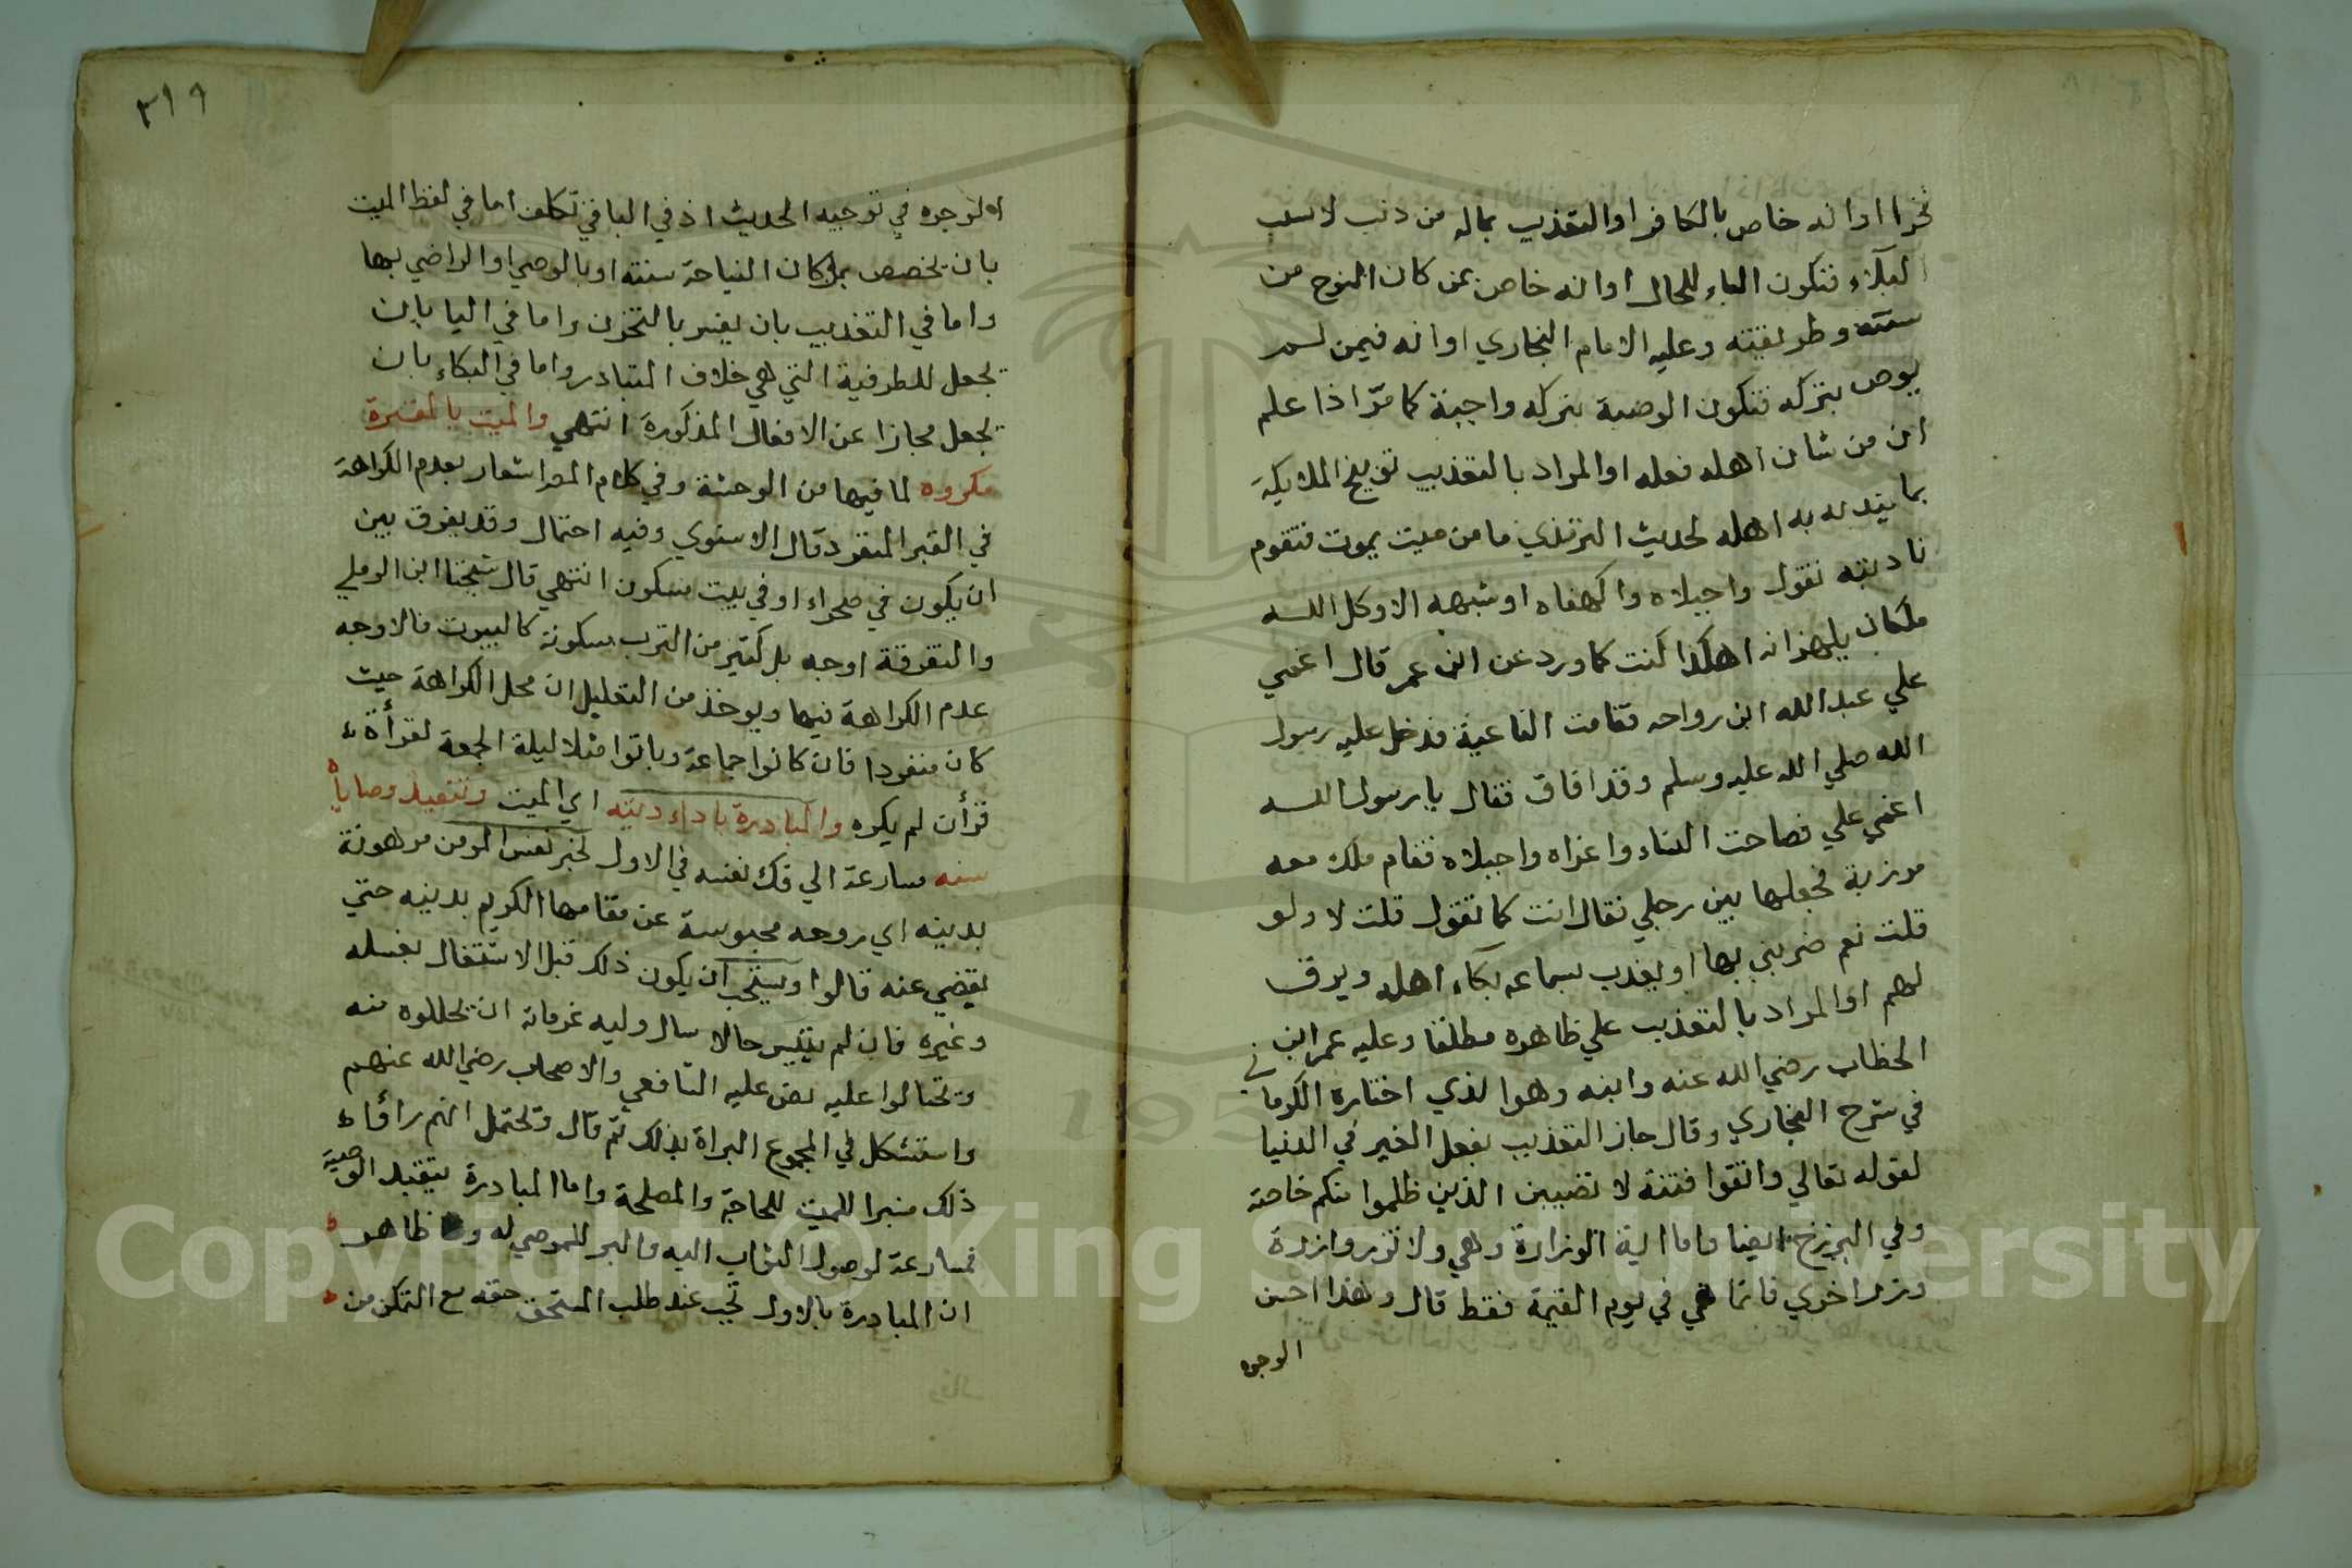 فخرا اوانه خاص بالكافر او التعذيب بماله من ذنب لا بسبب
البكاء فتكون الباء للحال اوانه خاص بمن كان النوح من
سنته وطريقته وعليه الامام البخاري اوانه فيمن لم
يوص بتركه فتكون الوصية بتركه واجبة كما مرّ اذا علم
ان من شان اهله فعله او المراد بالتعذيب توبيخ الملايكة
بما يندبه به اهله لحديث الترمذي ما من ميت يموت فتقوم
نادبته تقول واجبلاه واكهفاه او شبهه الا وكل الله
ملكان يلهزانه اهكذا كنت كما ورد عن ابن عمر قال اغمي
علي عبد الله ابن رواحه فقامت الناعية فدخل عليه رسول
الله صلي الله عليه وسلم وقد افاق فقال يا رسول الله
اغمي علي فصاحت النساء واعزاه واجبلاه فقام ملك معه
مرزبة فجعلها بين رجلي فقال انت كما تقول قلت لا ولو
قلت نعم ضربني بها او يعذب بسماعه بكاء اهله ويرق
لهم او المراد بالتعذيب علي ظاهره مطلقا وعليه عمر ابن
الخطاب رضي الله عنه وابنه وهو الذي اختاره الكرماني
في شرح البخاري وقال جاز التعذيب بفعل الغير في الدنيا
لقوله تعالي واتقوا فتنة لا تصيبن الذين ظلموا منكم خاصة
وفي البرزخ ايضا واما اية الوزارة وهي ولا تزر وازرة
وزر اخري فانما هي في يوم القيمة فقط قال وهذا احسن
الوجوه
٣١٩
الوجوه في توجيه الحديث اذ في الباقي تكلف اما في لفظ الميت
بان يخصص بمن كان النياحة سنته او بالوصي او الراضي بها
واما في التعذيب بان يفسر بالتحزن واما في البا بان
تجعل للظرفية التي هي خلاف المتبادر واما في البكاء بان
تجعل مجازا عن الافعال المذكورة انتهي والميت بالمقبرة
مكروه لما فيها من الوحشة وفي كلام المص اشعار بعدم الكراهة
في القبر المنفرد قال الاسنوي وفيه احتمال وقد يفرق بين
ان يكون في صحراء او في بيت مسكون انتهي قال شيخنا ابن الرملي
والتفرقة اوجه بل كثير من الترب مسكونة كالبيوت فالاوجه
عدم الكراهة فيها ويوخذ من التعليل ان محل الكراهة حيث
كان منفردا فان كانوا جماعة وباتوا مثلا ليلة الجمعة لقرأة
قرأن لم يكره والمبادرة باداء دينه اي الميت وتنفيذ وصاياه
سنه مسارعة الي فك نفسه في الاول لخبر نفس المومن مرهونة
بدينه اي روحه محبوسة عن مقامها الكريم بدينه حتي
يقضي عنه قالوا ويستحب ان يكون ذلك قبل الاشتغال بغسله
وغيره فان لم يتيسر حالا سال وليه غرمائه ان يحللوه منه
وتحتالوا عليه نص عليه الشافعي والاصحاب رضي الله عنهم
واستشكل في المجموع البراة بذلك ثم قال ويحتمل انهم رأوا
ذلك مبرا للميت للحاجة والمصلحة واما المبادرة بتنفيذ الوصية
فمسارعة لوصول الثواب اليه والبر للموصي له وظاهر
ان المبادرة بالاول تجب عند طلب المستحق حقه مع التمكن من
Copyright © King Saud University
195